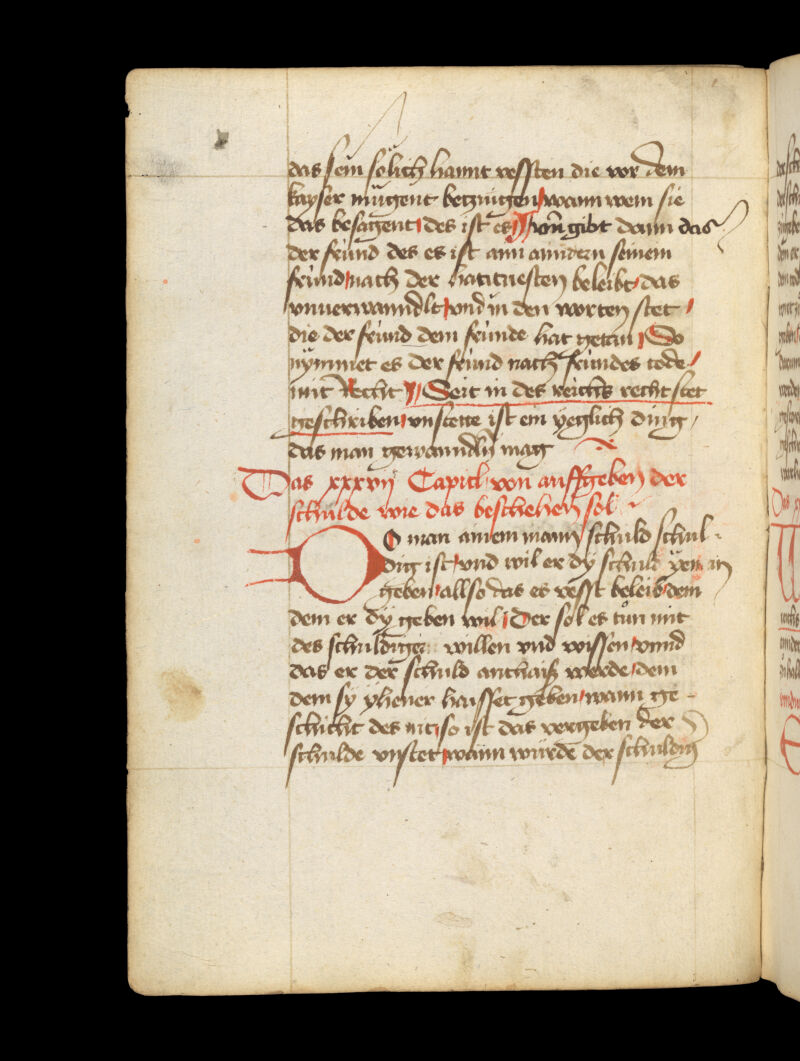 das sein sölich hannt vessten die vor dem
kayser mügent betzwigen wann wem sie
das besagent des ist es von gibt dann das
der frùnd des es ist ann ainndern seinem
frùnd nach der hattnesten beleibt das
vnuerwanndlt vnd in den worten stet
die der frùnd dem frùnde hat getan So
nymmet es der frùnd nach frùndes tode
mit Recht Seit in des reichs recht stet
geschriben vnstette ist ein yeglich ding
das man gewanndln mag
Das xxxvij Capitl von auffgeben der
schulde wie das beschehen sol
O man ainem mann schuld schul
dig ist vnd wil er dy schuld
geben allso das es vesst beleib dem
dem er dy geben wil Der sol es tůn mit
des schuldiger willen vnd wissen vnnd
das er der schuld anthaiß werde dem
dem sy yhener haisset geben wann ge
schicht des nit so ist das vergeben der
schulde vnstet wann würde der schuldig